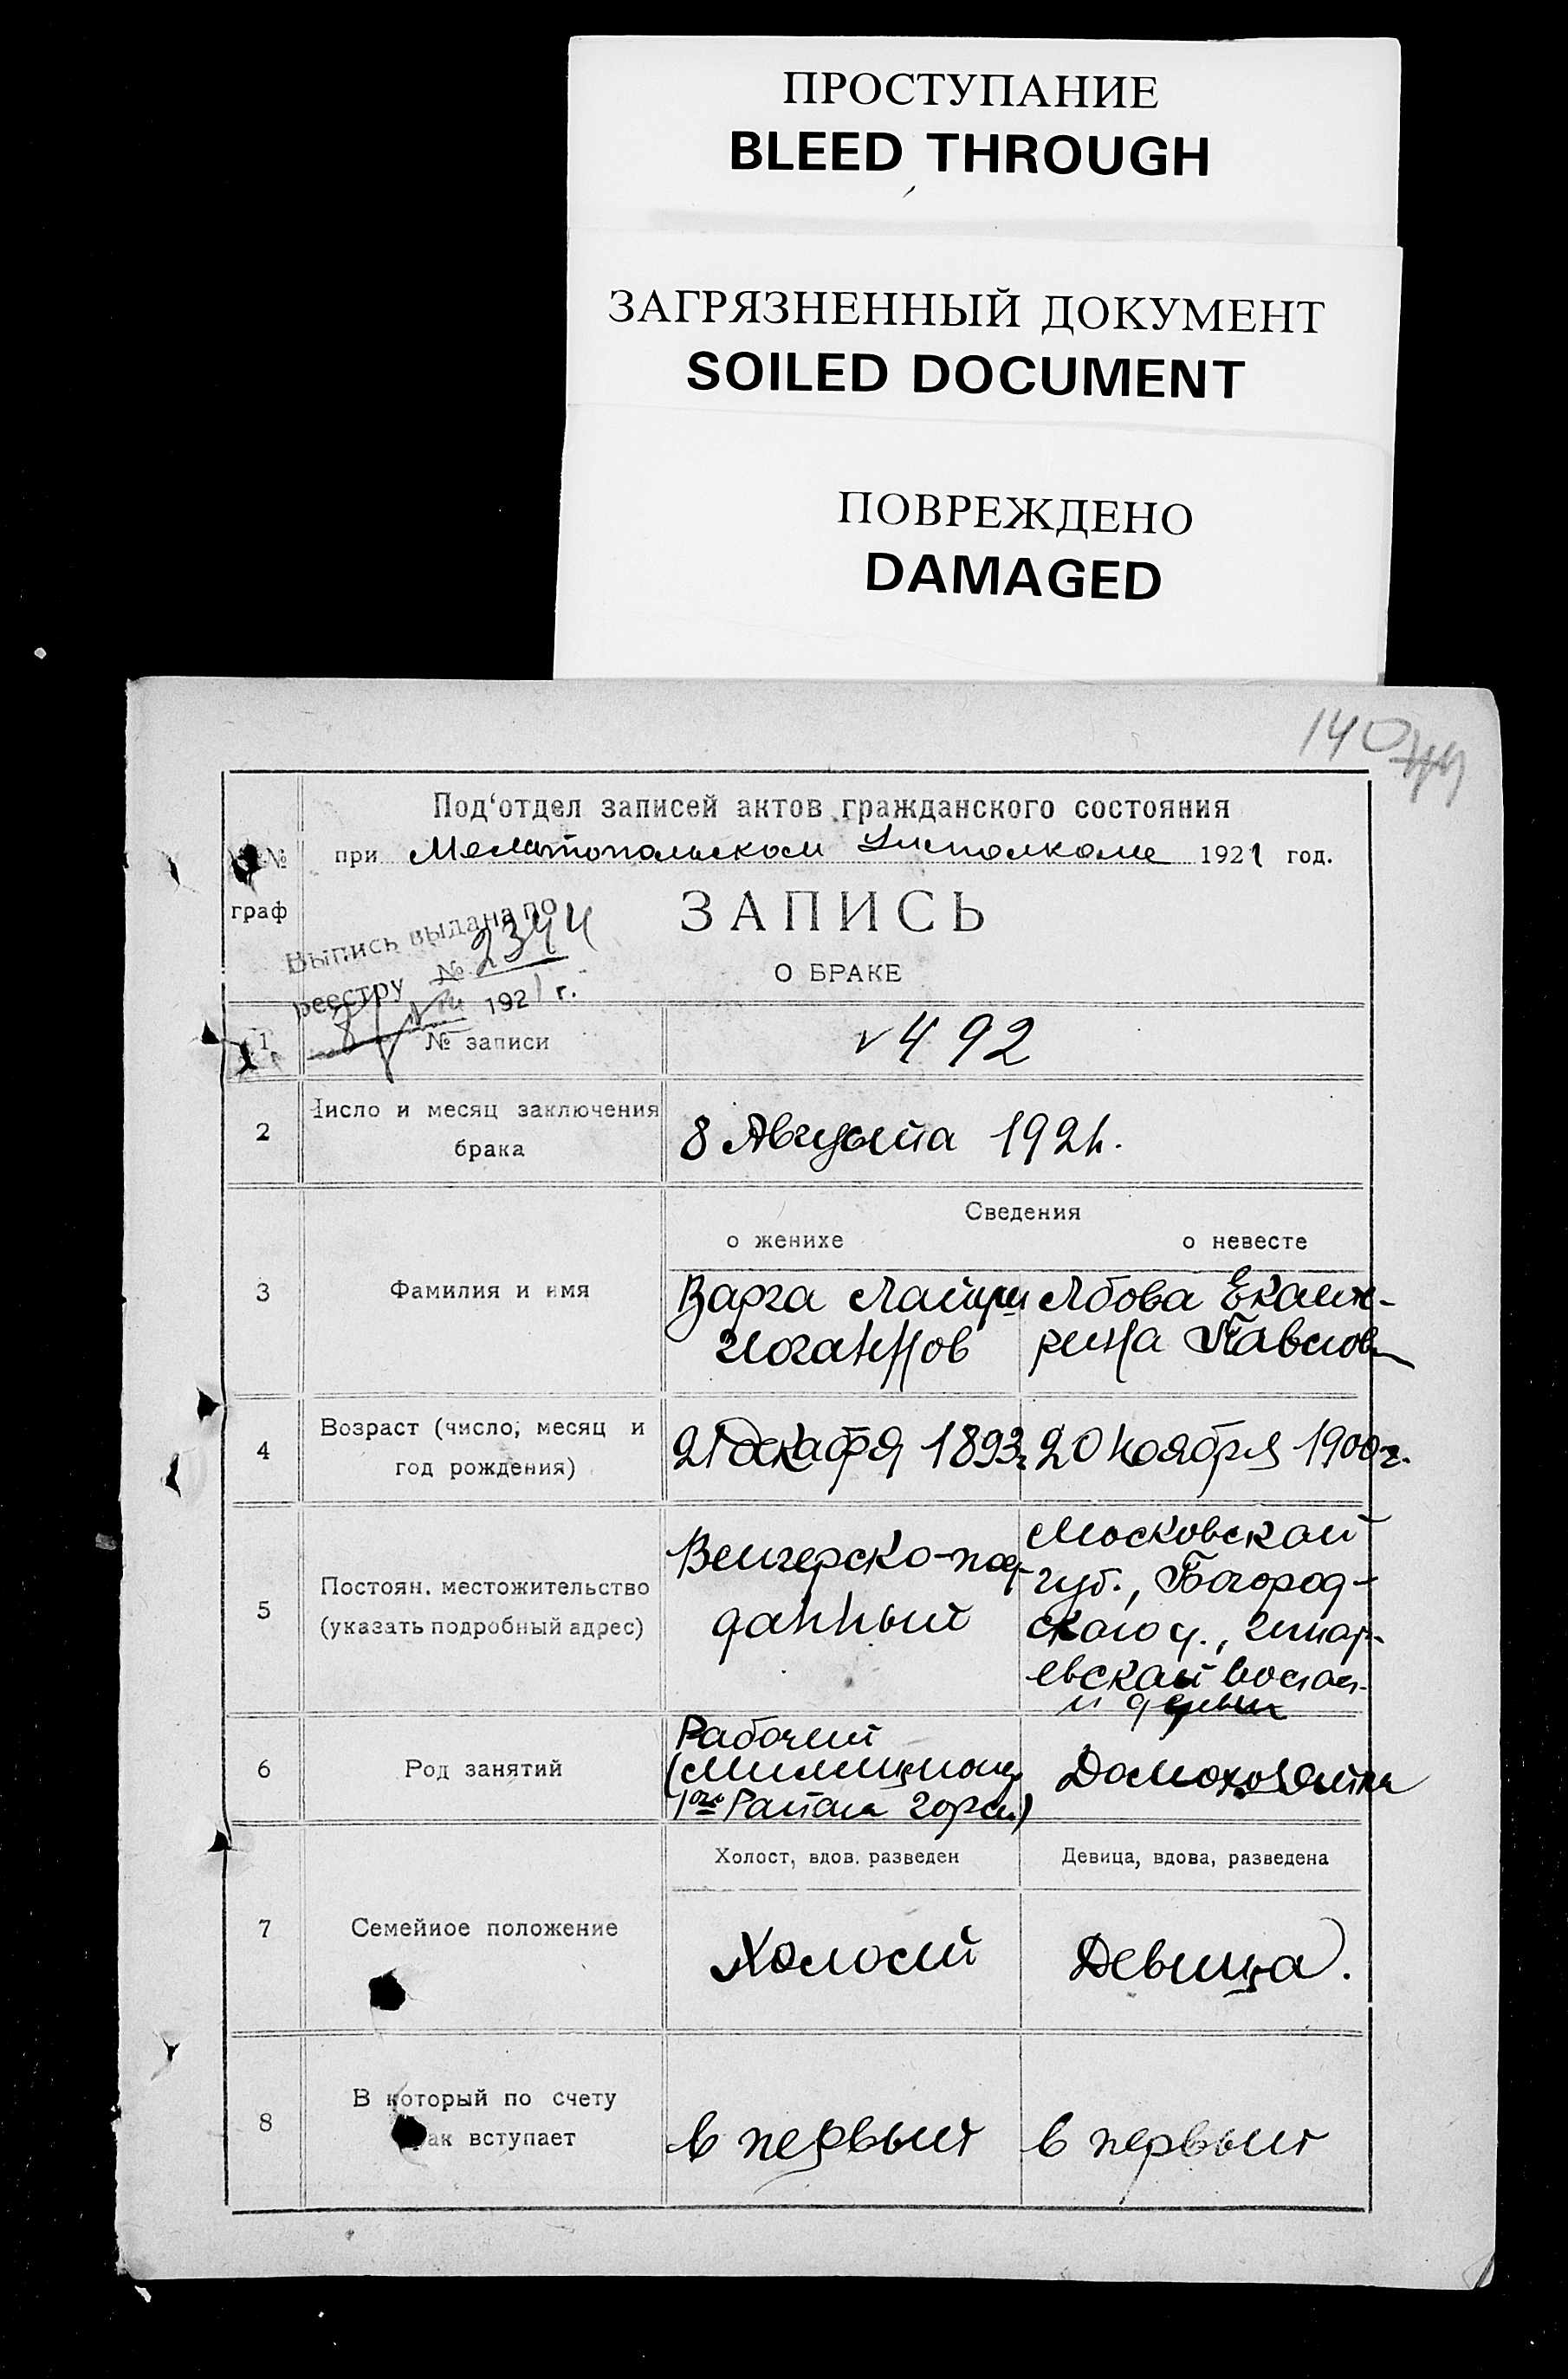 ПРОСТУПАНИЕ
BLEED THROUGH
ЗАГРЯЗНЕННЫЙ ДОКУМЕНТ
SOILED DOCUMENT
ПОВРЕЖДЕНО
DAMAGED
140
Под‘отдел записей актов гражданского состояния
№ при Мелитопольском Исполкоме 1921 год.
граф
ЗАПИСЬ
О БРАКЕ
Выпись выдана по
реестру № 2394
1921 г.
1 № записи 492
2 Число и месяц заключения
брака
8 Августа 1921 г.
Сведения
о женихе о невесте
3 Фамилия и имя
Варга
Иоганнов
Лбова Екате-
рина Павлов
4 Возраст (число, месяц и
год рождения)
21 декабря 1893 г. 20 ноября 1900 г.
5 Постоян. местожительство
(указать подробный адрес)
Венгерско-под-
данный
Московской
губ., Богород-
ского у.,
6 Род занятий
Рабочий
(Милиционер
1го Района гор.)
Домохозяйка
7 Семейное положение
Холост, вдов. разведен Девица, вдова, разведена
Холостй Девица.
8 В который по счету
брак вступает
в первый в первый